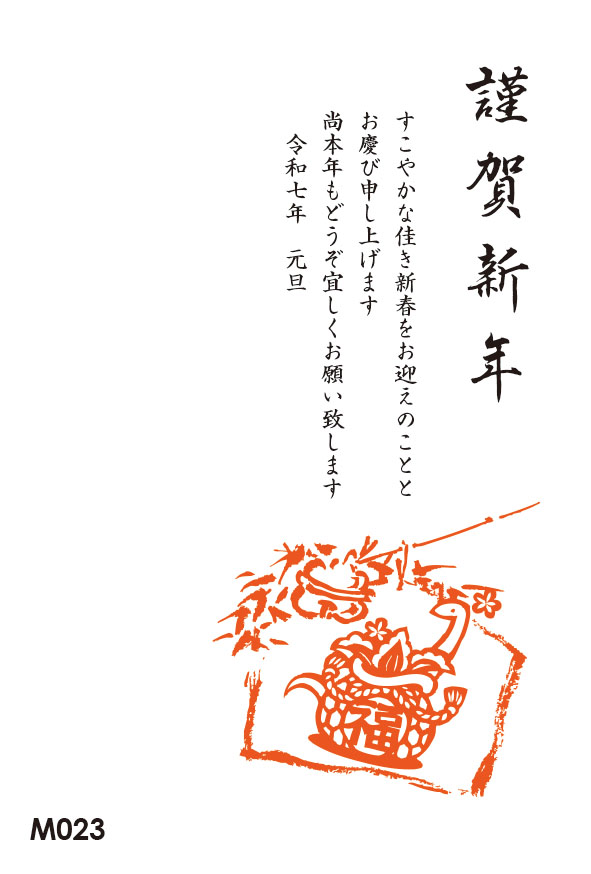 謹賀新年
すこやかな佳き新春をお迎えのことと
お慶び申し上げます
尚本年もどうぞ宜しくお願い致します
令和七年　元旦
福
M023